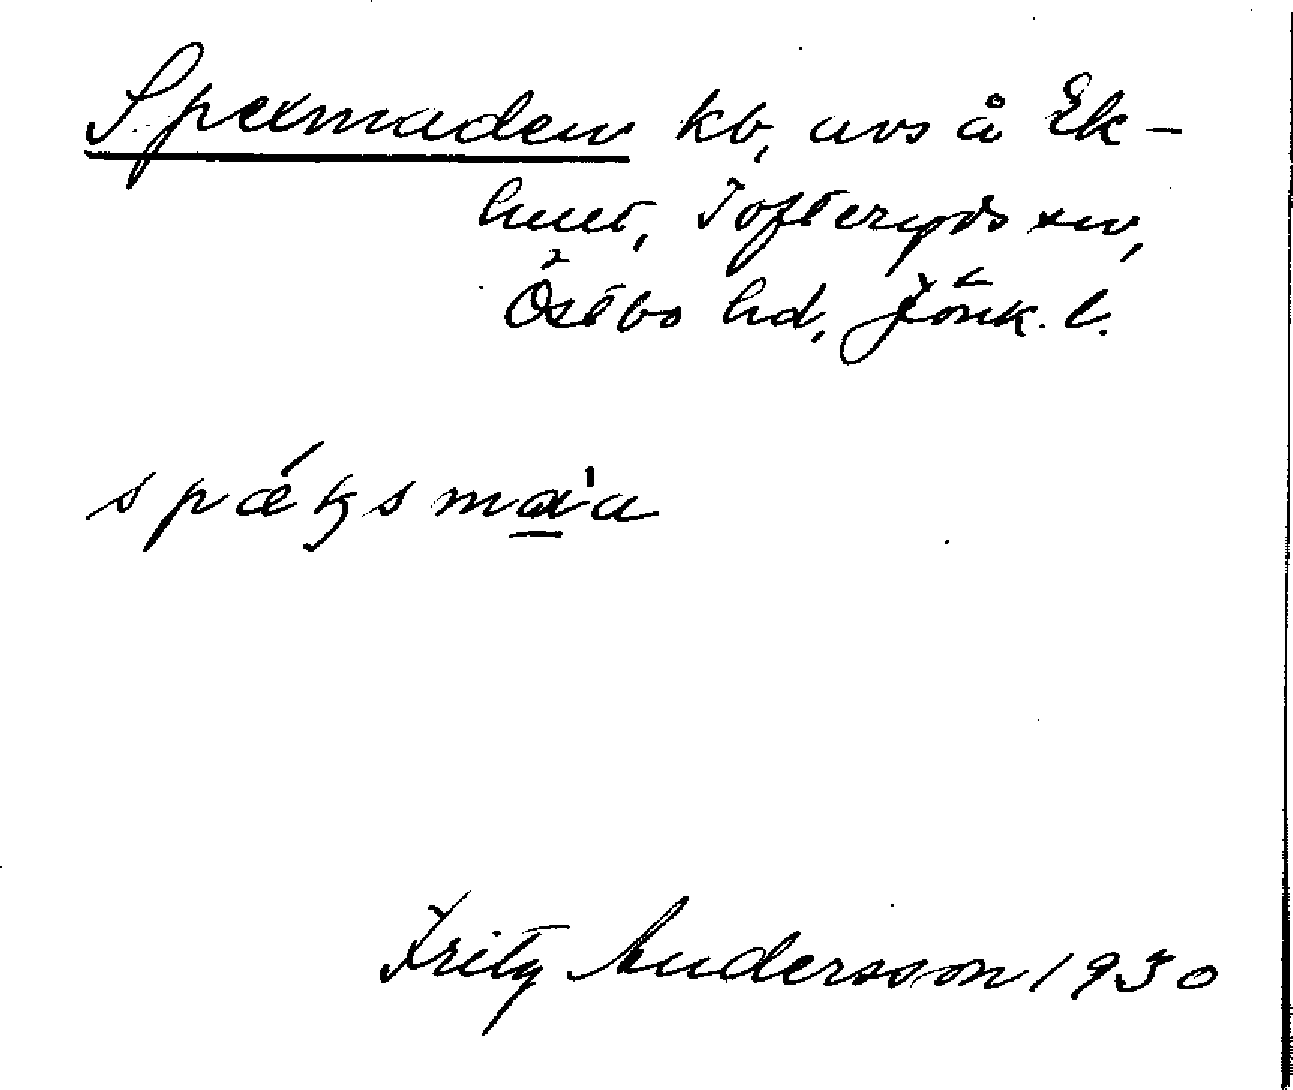 Spexmaden kb, avs å Ek-
hult, Tofteryds sn,
Östbo hd, Jönk. l.
spæksmaa
Fritz Andersson 1930